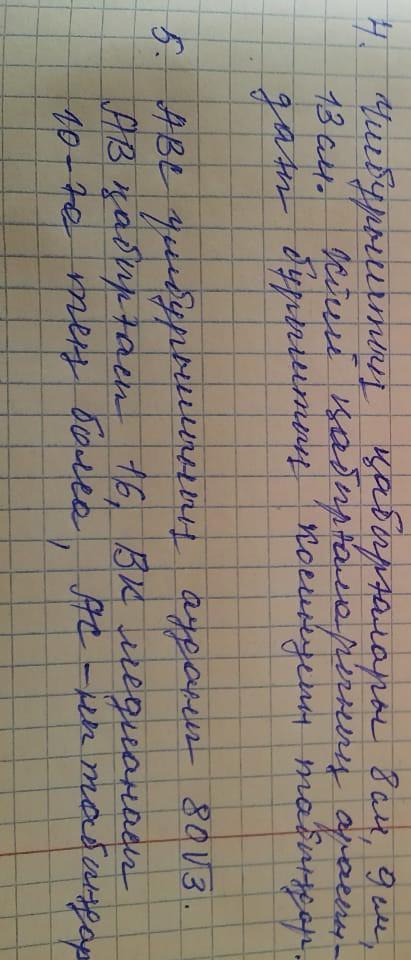 4. Үшбұрыштың қабырғалары 8 см, 9 см,
13 см. Кіші қабырғаларының арасын-
дағы бұрыштың косинусын табыңдар.
5. ABC үшбұрышының ауданы 80√3.
AB қабырғасы 16, BK медианасы
10-ға тең болса, AC-ны табыңдар